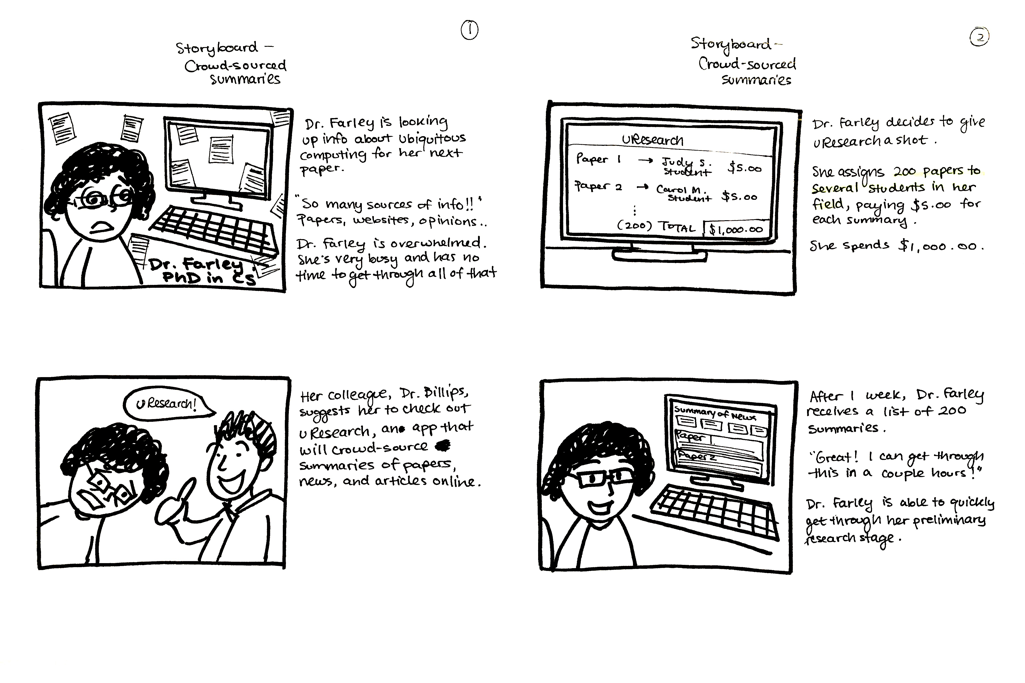 1
Storyboard –
Crowd-sourced
Summaries
Dr. Farley,
PhD in CS
Dr. Farley is looking
up info about ubiquitous
computing for her next
paper.
"So many sources of info!!"
Papers, websites, opinions..
Dr. Farley is overwhelmed.
She's very busy and has no
time to get through all of that
uResearch!
Her colleague, Dr. Billips,
suggests her to check out
uResearch, an app that
will crowd-source
summaries of papers,
news, and articles online.
2
Storyboard –
Crowd-sourced
Summaries
uResearch
Paper 1 → Judy S. $5.00
Student
Paper 2 → Carol M. $5.00
Student
⋮
(200) TOTAL $1,000.00
Dr. Farley decides to give
uResearch a shot.
She assigns 200 papers to
several students in her
field, paying $5.00 for
each summary.
She spends $1,000.00.
Summary of News
Paper 1
Paper 2
After 1 week, Dr. Farley
receives a list of 200
summaries.
"Great! I can get through
this in a couple hours!"
Dr. Farley is able to quickly
get through her preliminary
research stage.